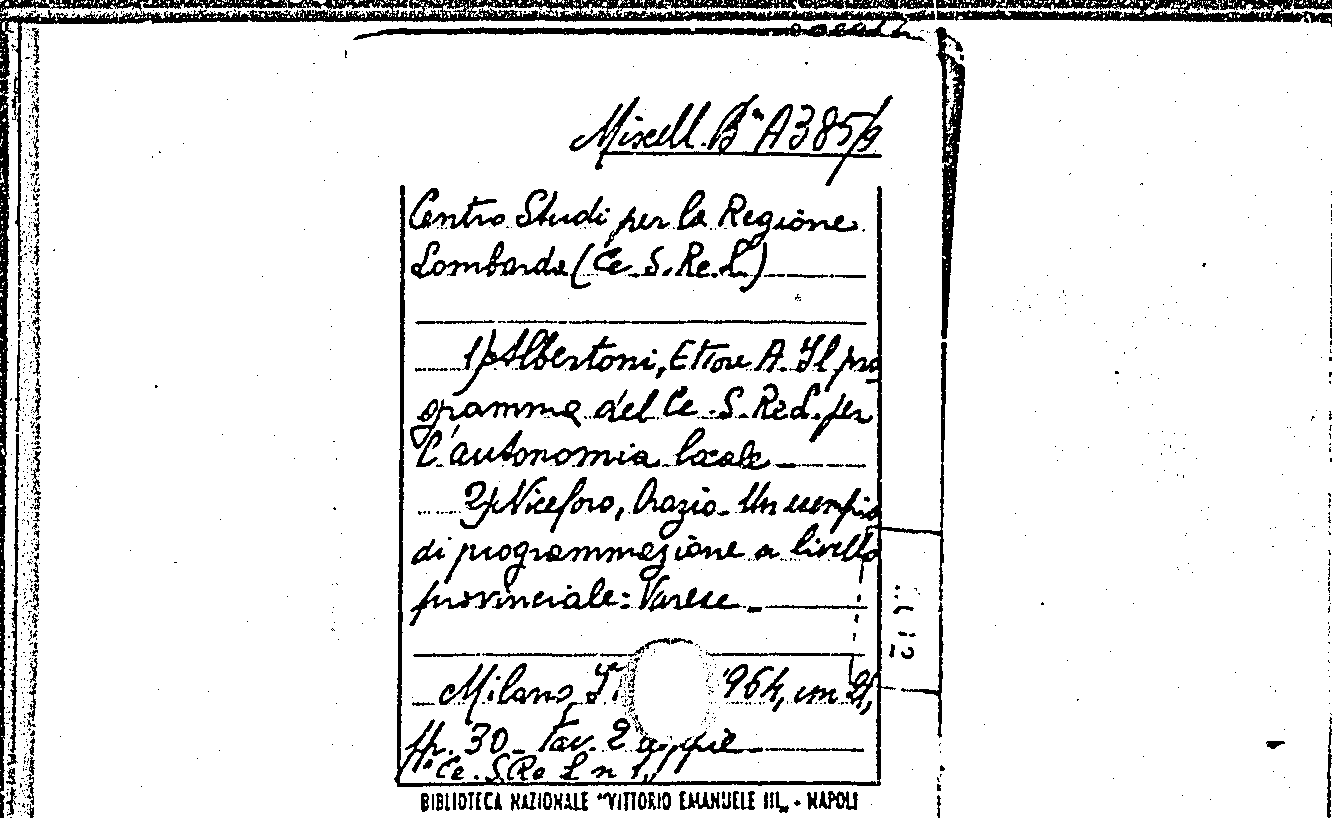 Miscell. Bª A385/9
Centro Studi per la Regione
Lombarda (Ce. S. Re. L.)
1) Albertoni, Ettore A. Il pro
gramma del Ce. S. Re L. per
l'autonomia locale
2) Niceforo, Orazio. Un esempio
di programmazione a livello
provinciale: Varese.
Milano, 964, cm 21,
pp. 30 Tav. 2
Ce. S Re L n 1
BIBLIOTECA NAZIONALE "VITTORIO EMANUELE III„ - NAPOLI